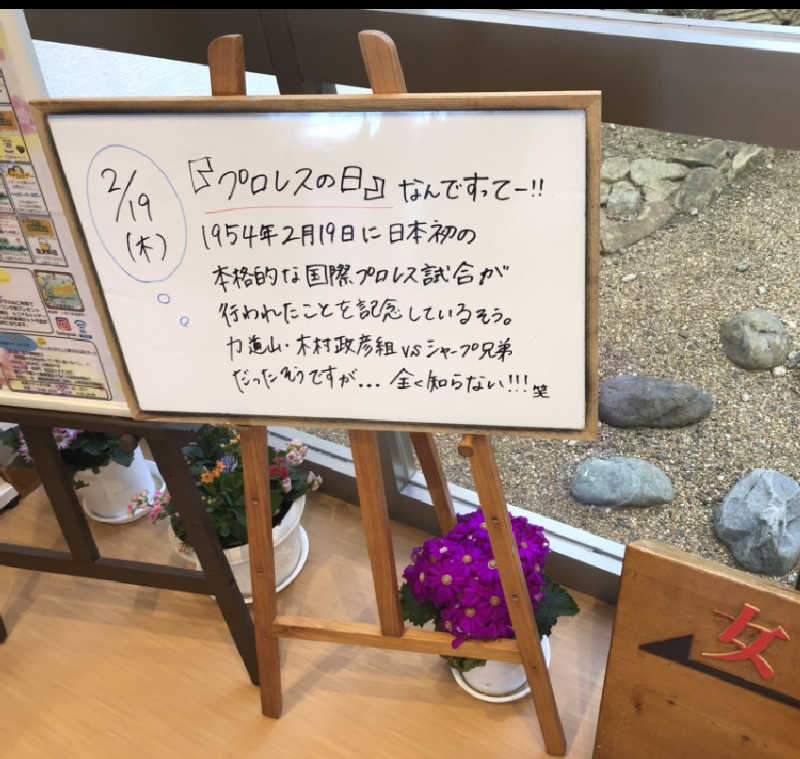 2/19
(木)
『プロレスの日』なんですってー!!
1954年2月19日に日本初の
本格的な国際プロレス試合が
行われたことを記念しているそう。
力道山・木村政彦組 vs シャープ兄弟
だったそうですが... 全く知らない!!! 笑
女